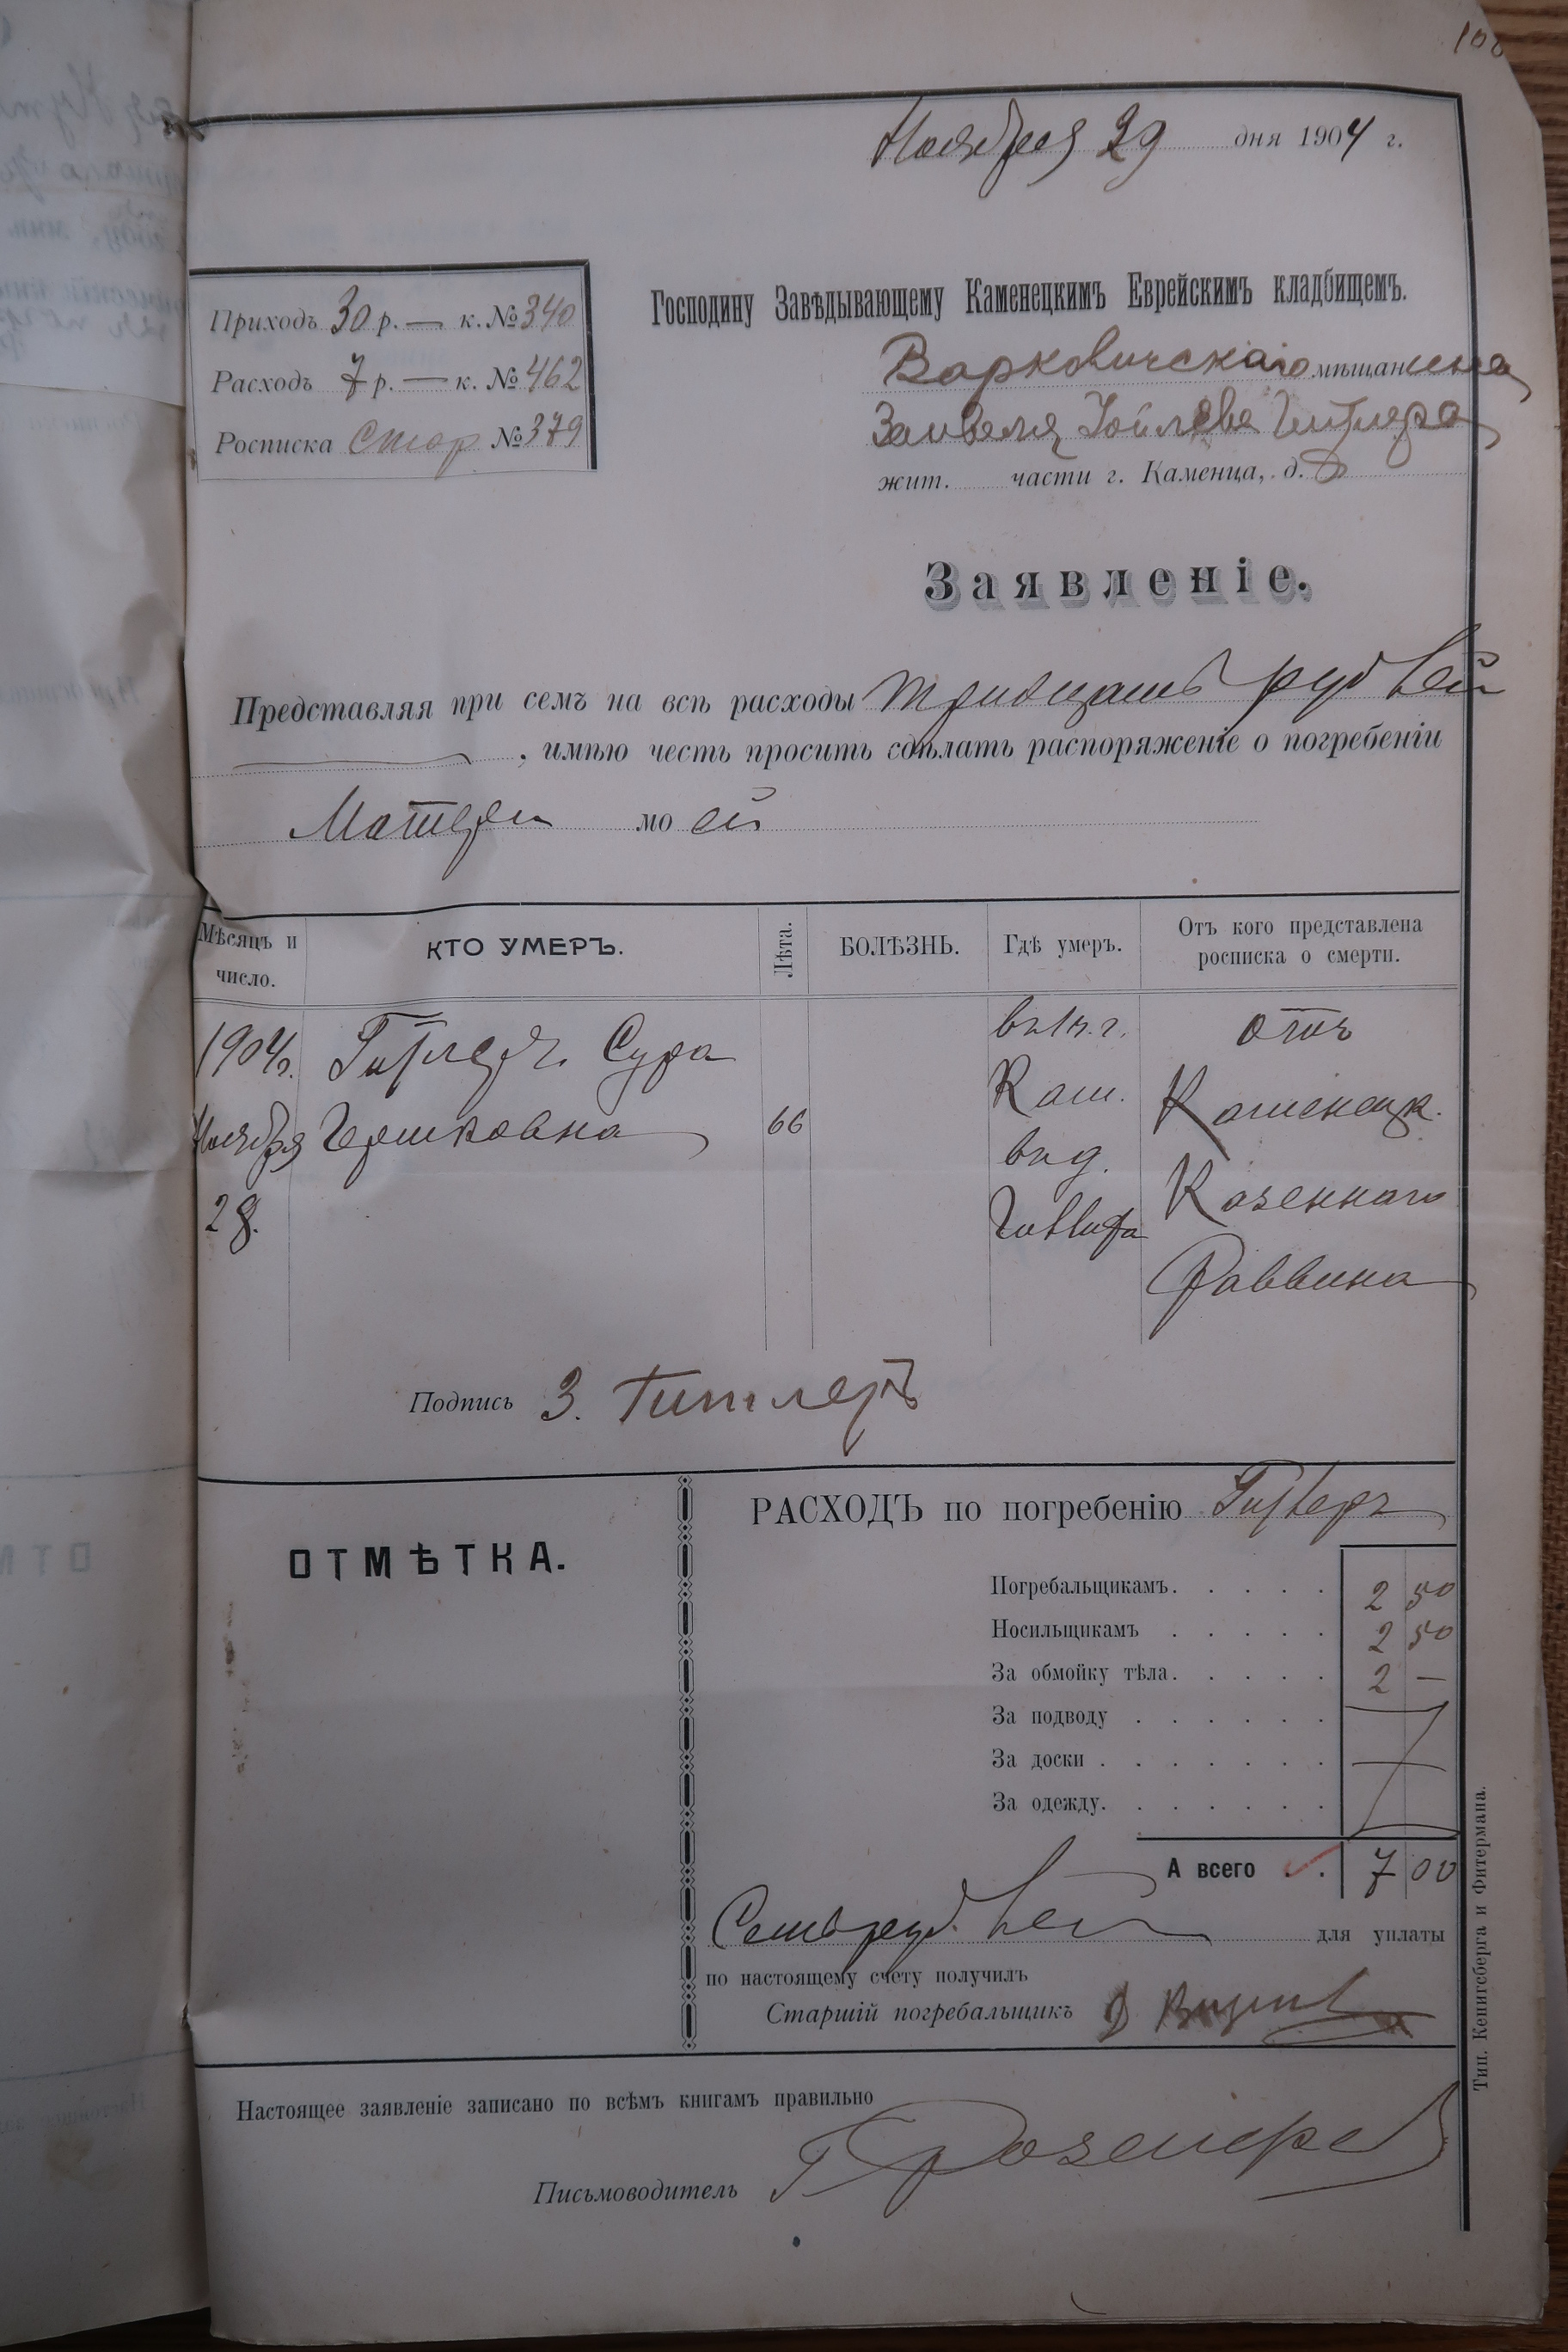 100
Ноября 29 дня 1904 г.
Приходъ 30 р. — к. № 340
Расходъ 7 р. — к. № 462
Росписка Стор № 379
Господину Завѣдывающему Каменецкимъ Еврейскимъ кладбищемъ.
Варковичскаго мѣщанина
Зейвеля Гитлера
жит. части г. Каменца, д.
Заявленіе.
Представляя при семъ на всѣ расходы тридцать рублей
, имѣю честь просить сдѣлать распоряженіе о погребеніи
Матери моей
Мѣсяцъ и число.
КТО УМЕРЪ.
Лѣта.
БОЛѢЗНЬ.
Гдѣ умеръ.
Отъ кого представлена росписка о смерти.
1904г. Гитлеръ Сура въ г. отъ
Ноября Гершковна 66 Кам. Каменецк.
28. въ д. Казеннаго
Раввина
Подпись З. Гитлеръ
ОТМѢТКА.
РАСХОДЪ по погребенію Гитлеръ
Погребальщикамъ. 2 50
Носильщикамъ 2 50
За обмойку тѣла. 2 —
За подводу
За доски
За одежду.
А всего 7 00
Семь рублей для уплаты
по настоящему счету получилъ
Старшій погребальщикъ
Настоящее заявленіе записано по всѣмъ книгамъ правильно
Письмоводитель
Тип. Кенигсберга и Фитермана.